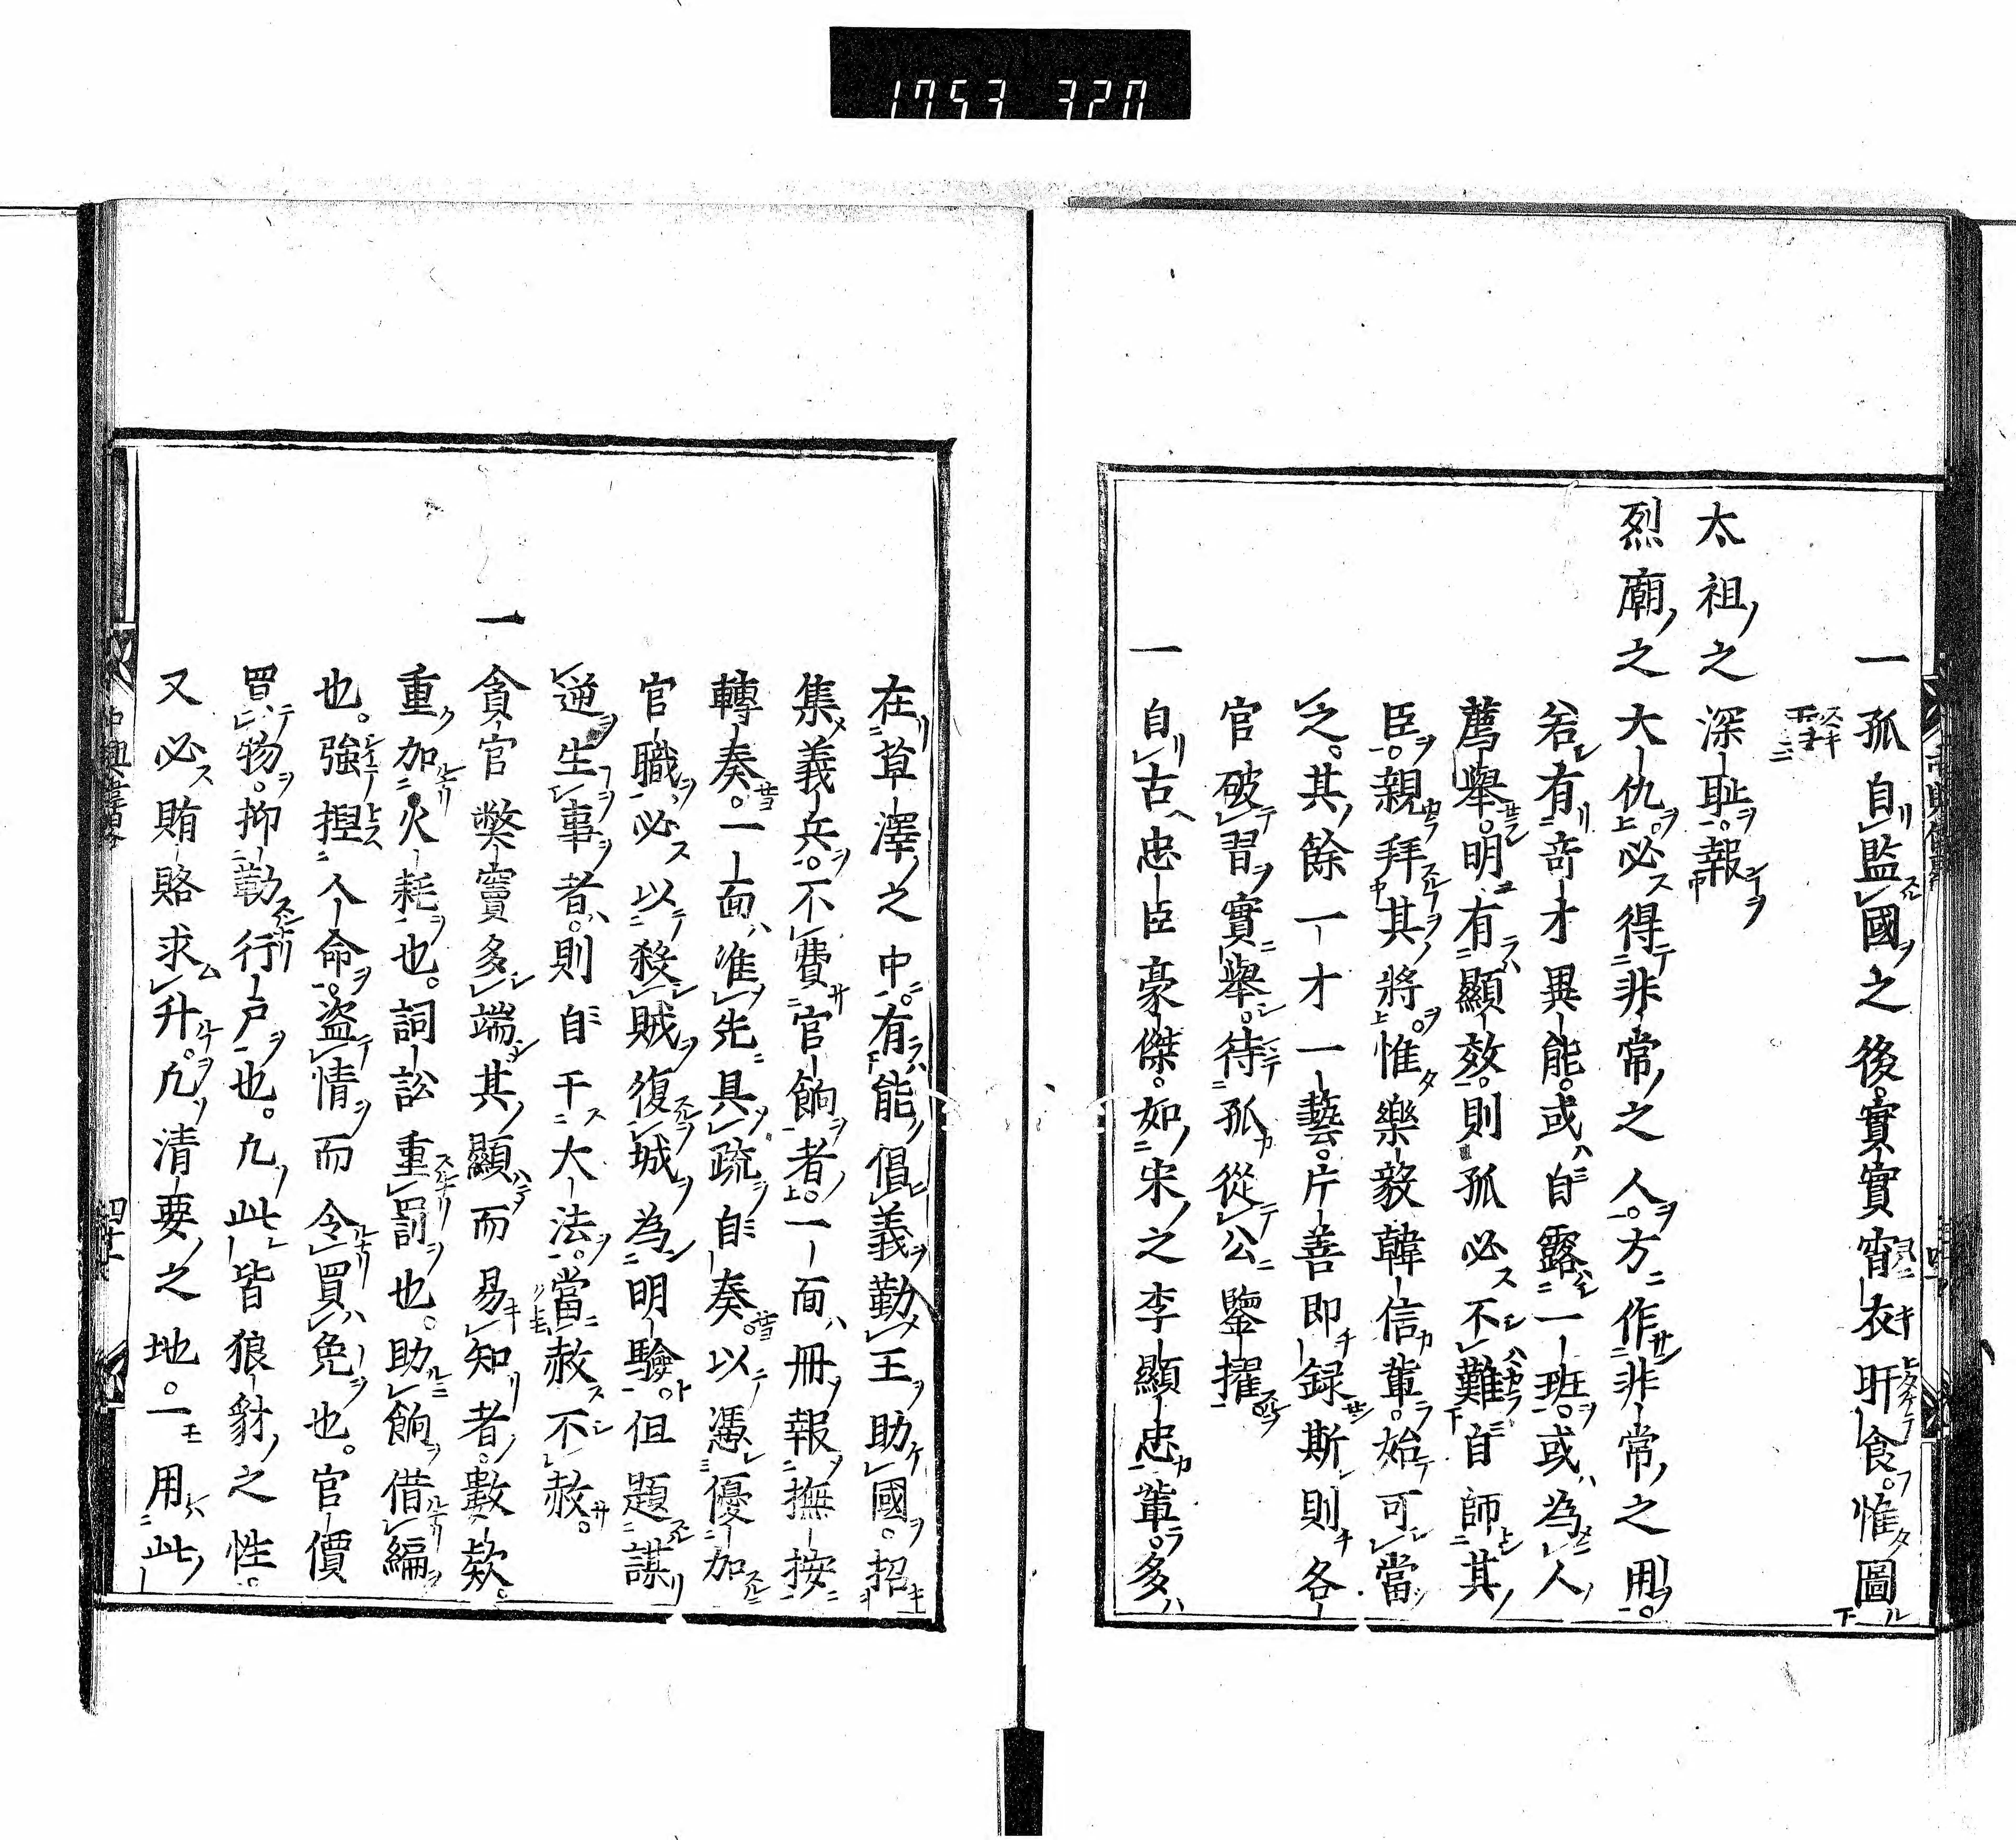 1753 320
一孤自監國之後。實實宵衣旰食。惟圖
太祖之深恥。報
烈廟之大仇。必得非常之人。方作非常之用。
若有奇才異能。或自露一班。或為人
薦舉。明有顯效。則孤必不難自師其
臣。親拜其將。惟樂毅韓信輩。始可當
之。其餘一才一藝。片善即録。斯則各
官破習實舉。待孤從公鑒擢
一自古忠臣豪傑。如宋之李顯忠輩。多
在草澤之中。有能倡義勤王助國。招
集義兵。不費官餉者。一面冊報撫按
轉奏。一面准先具疏自奏。以憑優加
官職。必以殺賊復城為明驗。但題謀
逆生事者。則自干大法。當赦不赦。
一貪官弊竇多端。其顯而易知者。數欵。
重加火耗也。詞訟重罰也。助餉借編
也。強揑人命。盗情而令買免也。官價
買物。抑勒行戶也。凢此皆狼豺之性。
又必賄賂求升。凢清要之地。一用此
中興韋畧
四十二